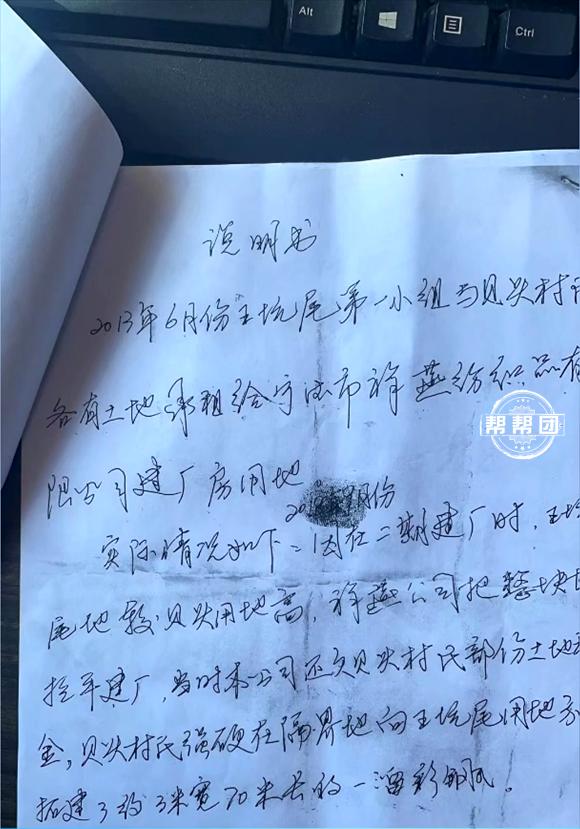 Alt
Ctrl
说明书
2013年6月份王坑尾第一小组与贝头村
各有土地承租给宁德市祥燕纺织品有
帮帮团
限公司建厂房用地
月份
实际情况如下：因在二期建厂时，王坑
尾地较贝头用地高，祥燕公司把整块地
挖平建厂，当时本公司还欠贝头村民部份土地
金，贝头村民强硬在隔界地向王坑尾用地
拓建了约3米宽70米长的一溜彩钢瓦。